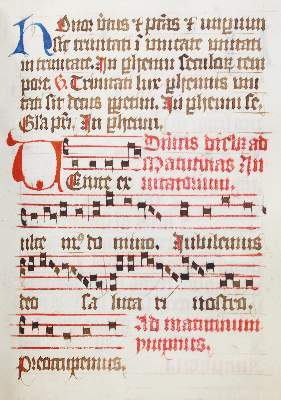 Honor virtus & potestas & imperium
sit trinitati in unitate unitati
in trinitate. In perhenni seculorum tem
pore. V. Trinitati lux perhennis uni
tati sit decus perpetim. In perhenni se.
Gloria patri. In perhenni.
Dominicis diebus ad
Matutinas In
Venite ex
vitatorium.
ulte mus do mino. Iubilemus
deo sa luta ri nostro.
Ad matutinum
ympnus.
Preoccupemus.